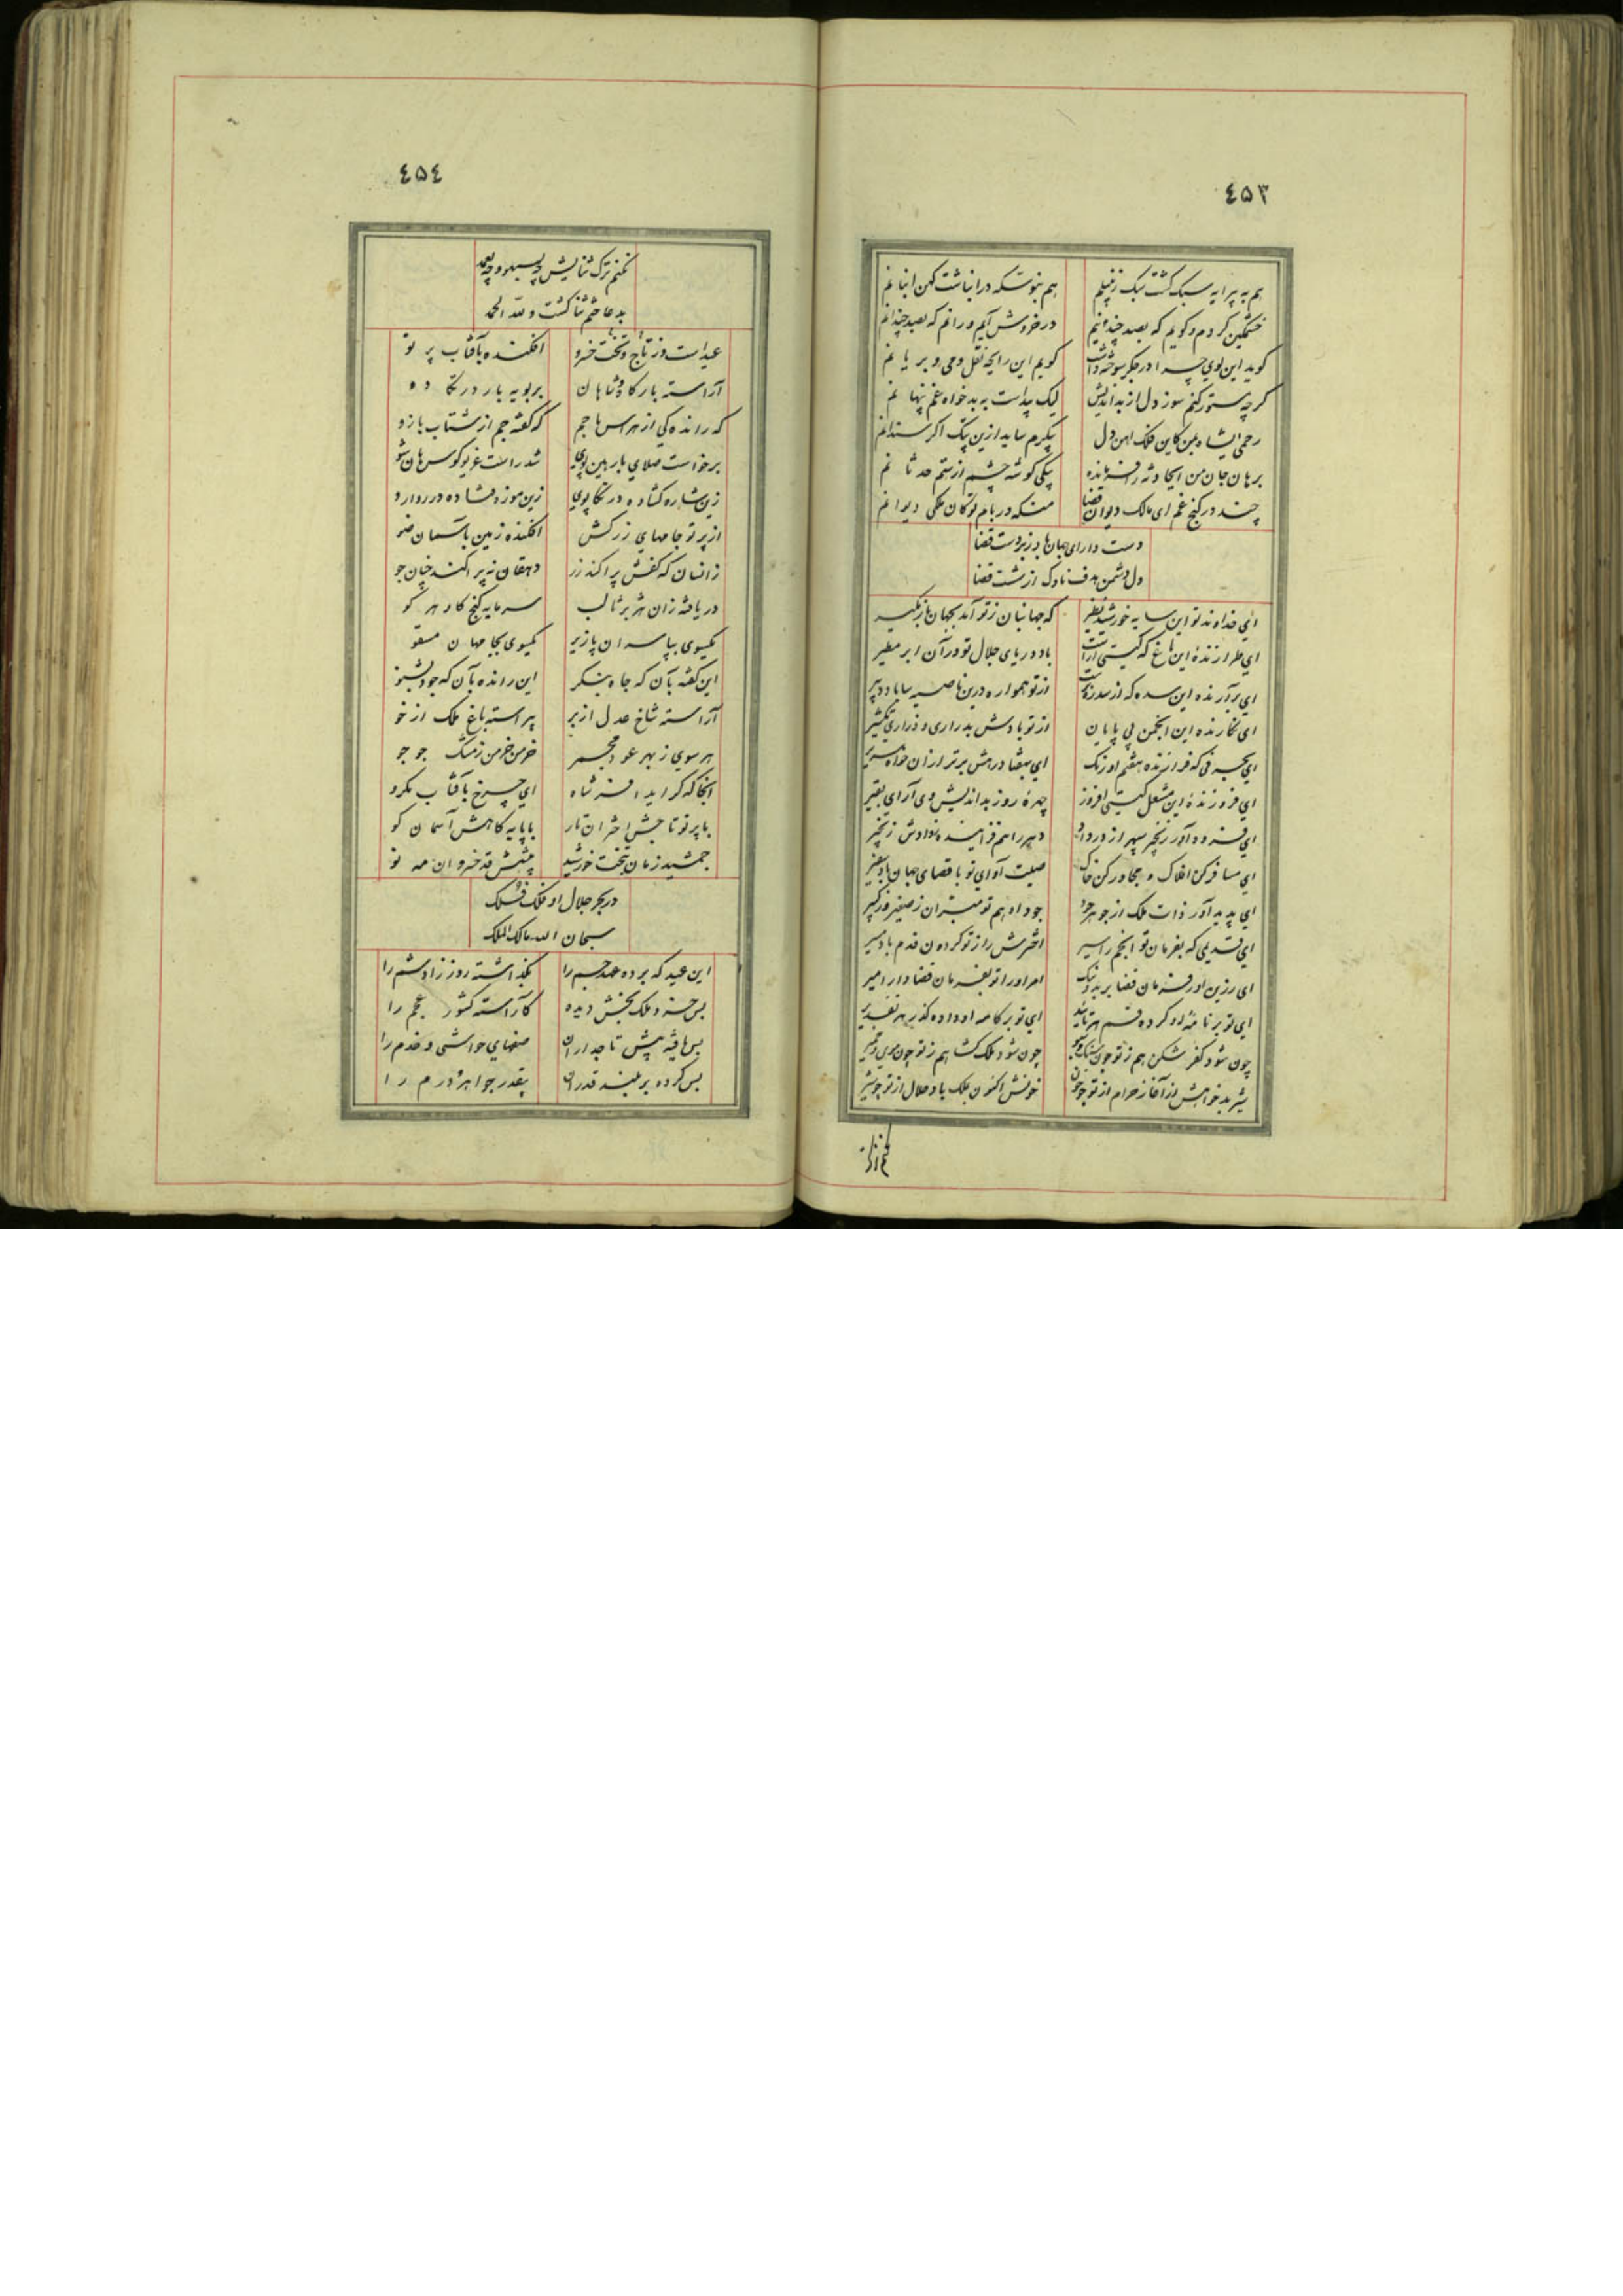 ٤۵۳
هم به پیرایه سبک گشت سبک زنبیلم
هم بنوتنکه در انباشت کهن انبانم
خشمگین گردم و گویم که بصد چندانیم
در خروش آیم و رانم که بصد چندانم
گوید این بوی چرا در جگر سوخته داشت
گویم این رایحه نقل ومی و بریانم
گرچه مستور کنم سوز دل از بداندیش
لیک پیداست به بدخواه غم پنهانم
رحمی ایشاه ببین کاین فلک اهن دل
پیکرم ساید ازین پتک اگر سندانم
برهان جان من اینجا
بیکی گوشه چشم از ستم حدثانم
چند در کنج غم ای مالک دیوان قضا
منکه در بام توکان ملکی دیوانم
دست دارای جهان باد زبردست قضا
دل دشمن هدف ناوک از شست قضا
ای خداوند تو این سایه خورشید نظیر
که جهانبان ز تو آمد بجهان بازمگیر
ای طرازنده این باغ که گیتی آراست
باد دریای جلال تو در آن ابر مطیر
ای برآرنده این سده که از سدره
از تو همواره درین ناصیه سایاد دبیر
ای نگارنده این انجمن بی پایان
از تو بادش بدراری و ذراری تکثیر
ای بحرفی که فرازنده هفتم اورنگ
ای بهفتاد رهش برتر از ان خواه سریر
ای فروزنده این مشعل گیتی افروز
چهره روز بداندیش وی آرای بقیر
ای فرود آور زنجیر سپهر از در داد
دهر را هم ز زنجیر
ای مسافر کن افلاک و مجاور کن خاک
صیت آوای تو با قصای جهان باد سفیر
ای پدید آور ذات ملک از جوهر جود
جود او هم تو مبتران ز صغیر و ز کبیر
ای قدیمی که بفرمان تو انجم راسیر
اخترش را ز تو گردون قدم باد مسیر
ای رزین اور فرمان قضا بر بد و نیک
امر او را تو بفرمان قضا دار امیر
ای تو بر نامه او کرده قسم هر تایید
ای تو بر کامه او داده گذر هر تقدیر
چون شود کفر شکن هم ز تو چون سنگ و سبو
چون شود ملک گشا هم ز تو چون موی و خمیر
شیر بدخواهش از آغاز حرام از تو چو خون
خونش اکنون بملک باد حلال از تو چو شیر
٤۵٤
نکنم ترک ثنایش چه بسهو و چه بعمد
بدعا ختم ثنا گشت و لله الحمد
عید است وز تاج و تخت خسرو
افکنده بآفتاب پرتو
آراسته بارگاه شاهان
بر بویه بار در تکا دو
که رانده کی از هراس ها جم
که گفته جم از شتاب ها زو
برخواست صلای بار هین پوی
شد راست غریو کوس هان شو
زین شاره گشاده در تکاپوی
زین موزه فشاده در روارو
از پرتو جامهای زرکش
افکنده زمین بآسمان ضو
زانسان که کفش پراکند زر
دهقان نه پراکند چنان جو
دریافته زان هژبر ثالب
سرمایه گنج کاو هر گو
یکسوی بپاسران پازیر
یکسوی بجامهان مستو
این گفته بآن که جاه بنگر
این رانده بآن که جود بشنو
آراسته شاخ عدل از بر
پیراسته باغ ملک از خو
هر سوی ز بهر عود مجمر
خرمن خرمن ز مشک جو جو
آنجا که گراید افسر شاه
ای چرخ بآفتاب مگرو
با پرتو تاجش اختران تار
با پایه گاهش آسمان گو
جمشید زمان بتخت خورشید
پیشش قد خسروان مه نو
در بحر جلال او فلک فلک
سبحان الله مالک الملک
این عید که برده عهد جم را
بگذاشته روز زاد شم را
بس خسرو ملک بخش دیده
کاراسته کشور عجم را
بس یافته پیش تاجداران
صفهای حواشی و خدم را
بس کرده بر بلند قدران
بیقدر جواهر و درم را